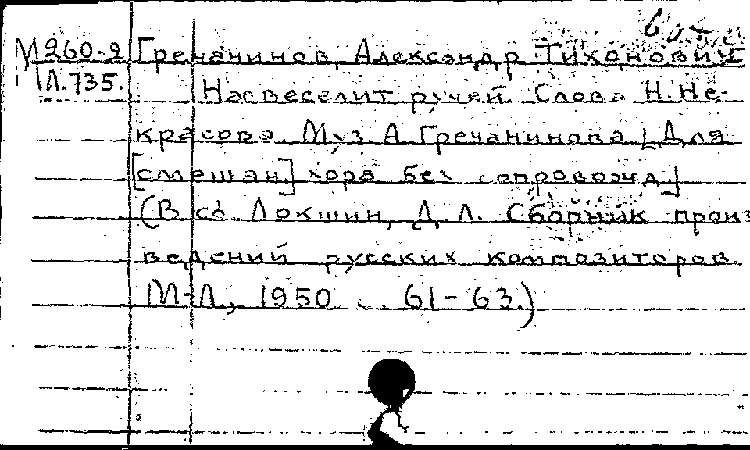 М260-2 Гречанинов, Александр Тихонович
Л.735. Нас веселит ручей. Слова Н. Не-
красова Муз А Гречанинова [Для
[смешан] хора без сопровожд]
(В сб. Локшин, Д. Л. Сборник произ
ведений русских композиторов.
М-Л, 1950 с. 61-63.)